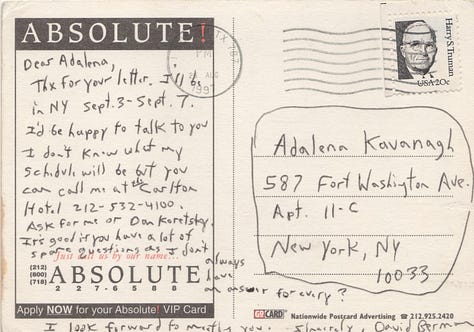 ABSOLUTE!
Dear Adalena,
Thx for your letter. I'll be
in NY Sept. 3 - Sept. 7.
I'd be happy to talk to you
I don't know what my
schedule will be but you
can call me at the Carlton
Hotel 212-532-4100.
Ask for me or Dan Koretsky.
It's good if you have a lot of
spare questions as I don't
always
have
an answer for every?
I look forward to meeting you. Sincerely, David Berman
Just call us by our name...
(212)
(800)
(718)
ABSOLUTE
2 2 7 6 5 8 8
Apply NOW for your Absolute! VIP Card
TX 787
PM
AUG
199
Harry S. Truman
USA 20c
Adalena Kavanagh
587 Fort Washington Ave.
Apt. 11-C
New York, NY
10033
GO CARD Nationwide Postcard Advertising ☎ 212.925.2420